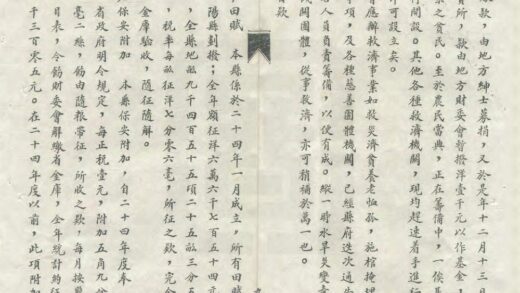 款，由地方紳士募捐，又於是年十二月十三日
貸所，款由地方財委會暫撥洋壹千元以作基金，
之貧民。至於農民當典，正在籌備中，一俟基
行開設。其他各種救濟機關，現均趕速着手進行
許可設立矣。
有應辦救濟事業如救災濟貧養老恤孤，施棺掩埋
事項，及各種慈善團體機關，已經縣府迭次通
人員負責籌備，以便有成。縱一時水旱災變
民間團體，從事救濟，亦可稍補於萬一也。
欵
田賦　本縣係於二十四年一月成立，所有田賦
陽縣劃撥；全年額征洋六萬六千七百五十四元
，全縣地畝九千四百五十五項二十五畝三分五
，稅率每畝征洋七分零六毫，所征之欵，完全
金庫驗收，隨征隨解。
保安附加　本縣保安附加，自二十四年度奉
省政府明令規定，每正稅壹元，附加五角九分
毫二絲，飭由隨糧帶征，所收之欵，每月按
目表，令飭財委會解繳省金庫，全年統計約征
千三百零五元。在二十四年度以前，此項附加